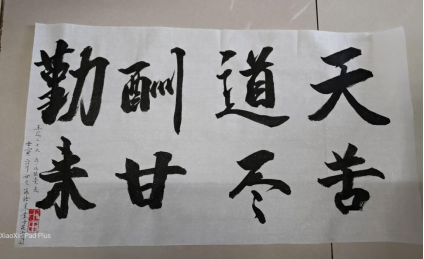 天道酬勤
苦尽甘来
XiaoXin Pad Plus